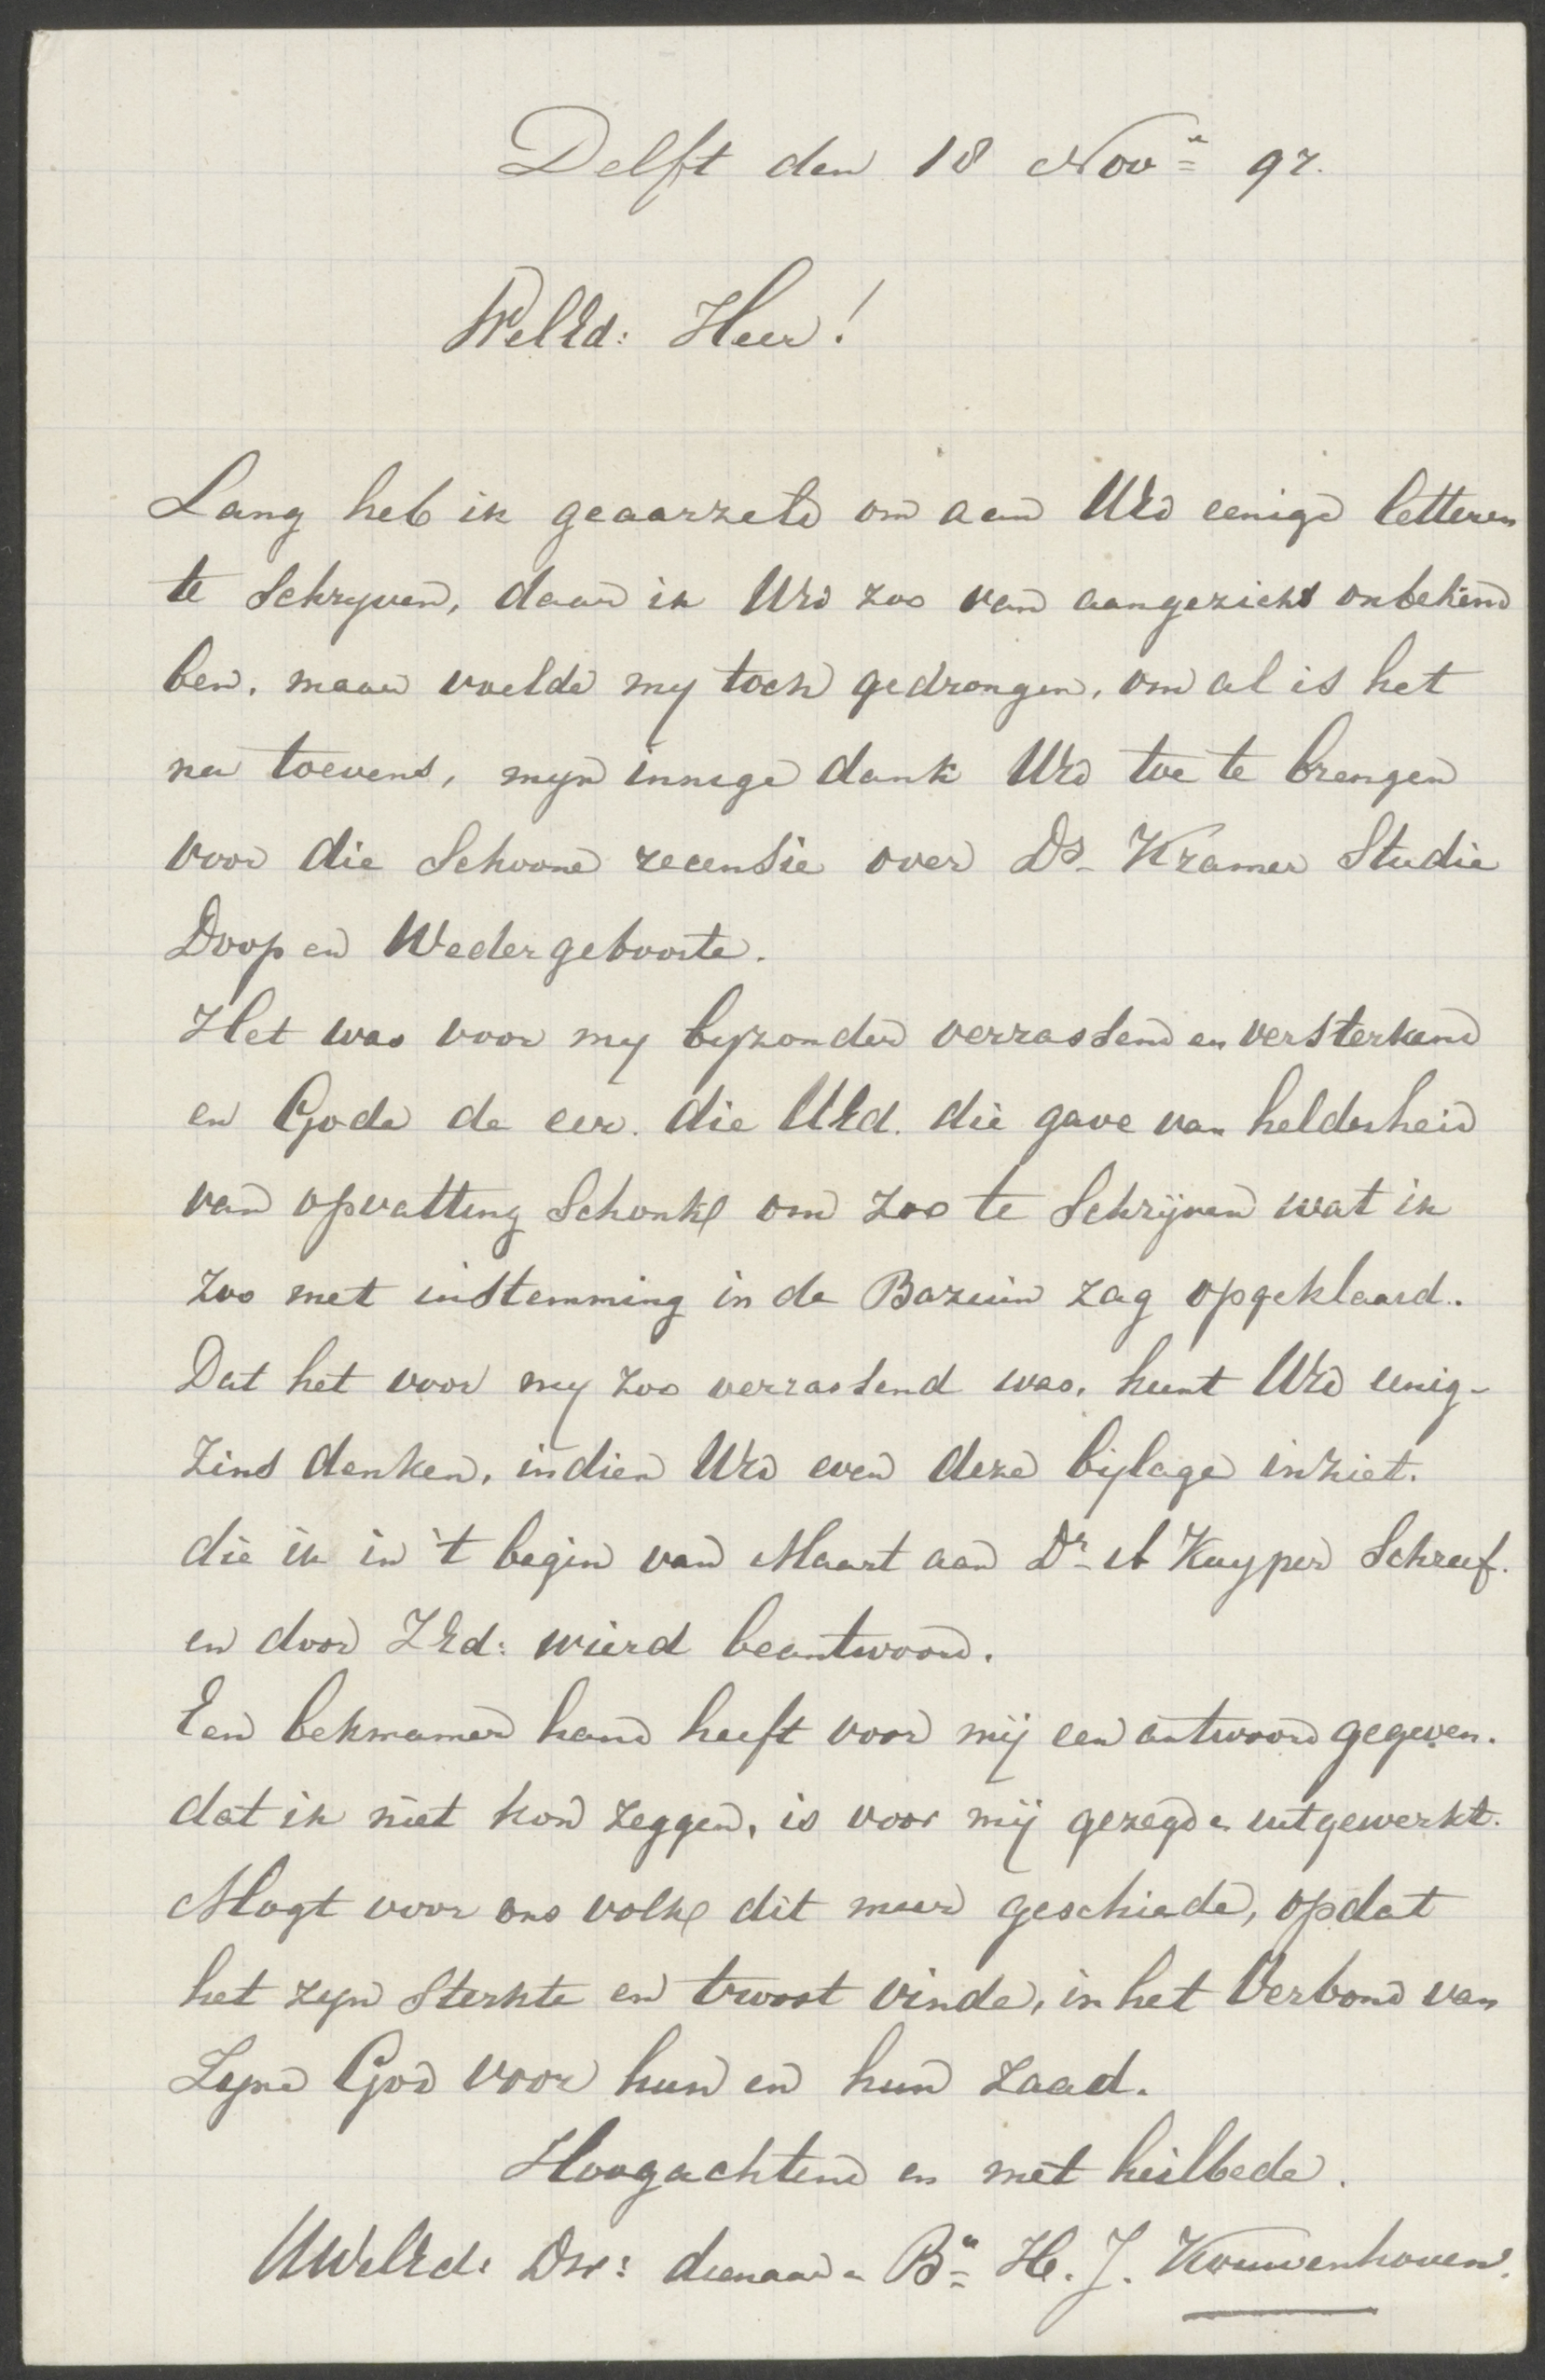 Delft den 18 Nov= 97.
WelEd: Heer!
Lang heb ik geaarzeld om aan UEd eenige letteren
te schryven, daar ik UEd zoo van aangezicht onbekend
ben, maar voelde my toch gedrongen, om al is het
na toevens, myn innige dank UEd toe te brengen
voor die schoone recensie over Ds Kramer Studie
Doop en Wedergeboorte.
Het was voor my byzonder verrassend en versterkend
en Gode de eer. die UEd. die gave van helderheid
van opvatting schonk om zoo te schrijven wat ik
zoo met instemming in de Bazuin zag opgeklaard.
Dat het voor my zoo verrassend was, kunt UEd eenig-
zins denken, indien UEd even deze bijlage inziet.
die ik in 't begin van Maart aan Dr A Kuyper schreef.
en door ZEd: wierd beantwoord.
Een bekwamer hand heeft voor mij een antwoord gegeven.
dat ik niet kon zeggen, is voor mij gezegd en uitgewerkt.
Mogt voor ons volk dit meer geschiede, opdat
het zyn sterkte en troost vinde, in het Verbond van
Zyne God voor hun en hun zaad.
Hoogachtend en met heilbede.
UWelEd: Dw: dienaar en Br= H. J. Kouwenhoven.